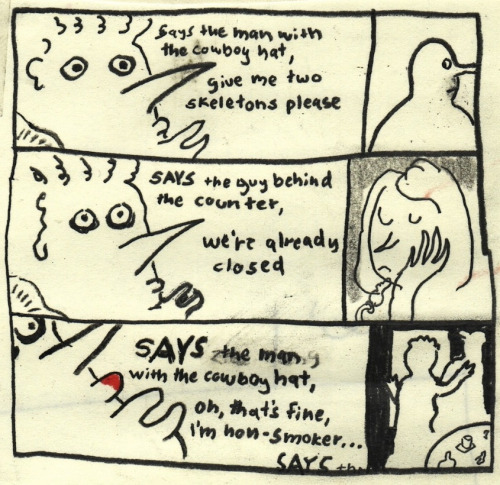 says the man with
the cowboy hat,
give me two
skeletons please
SAYS the guy behind
the counter,
we're already
closed
SAYS the man
with the cowboy hat,
oh, that's fine,
i'm non-smoker...
SAYS th